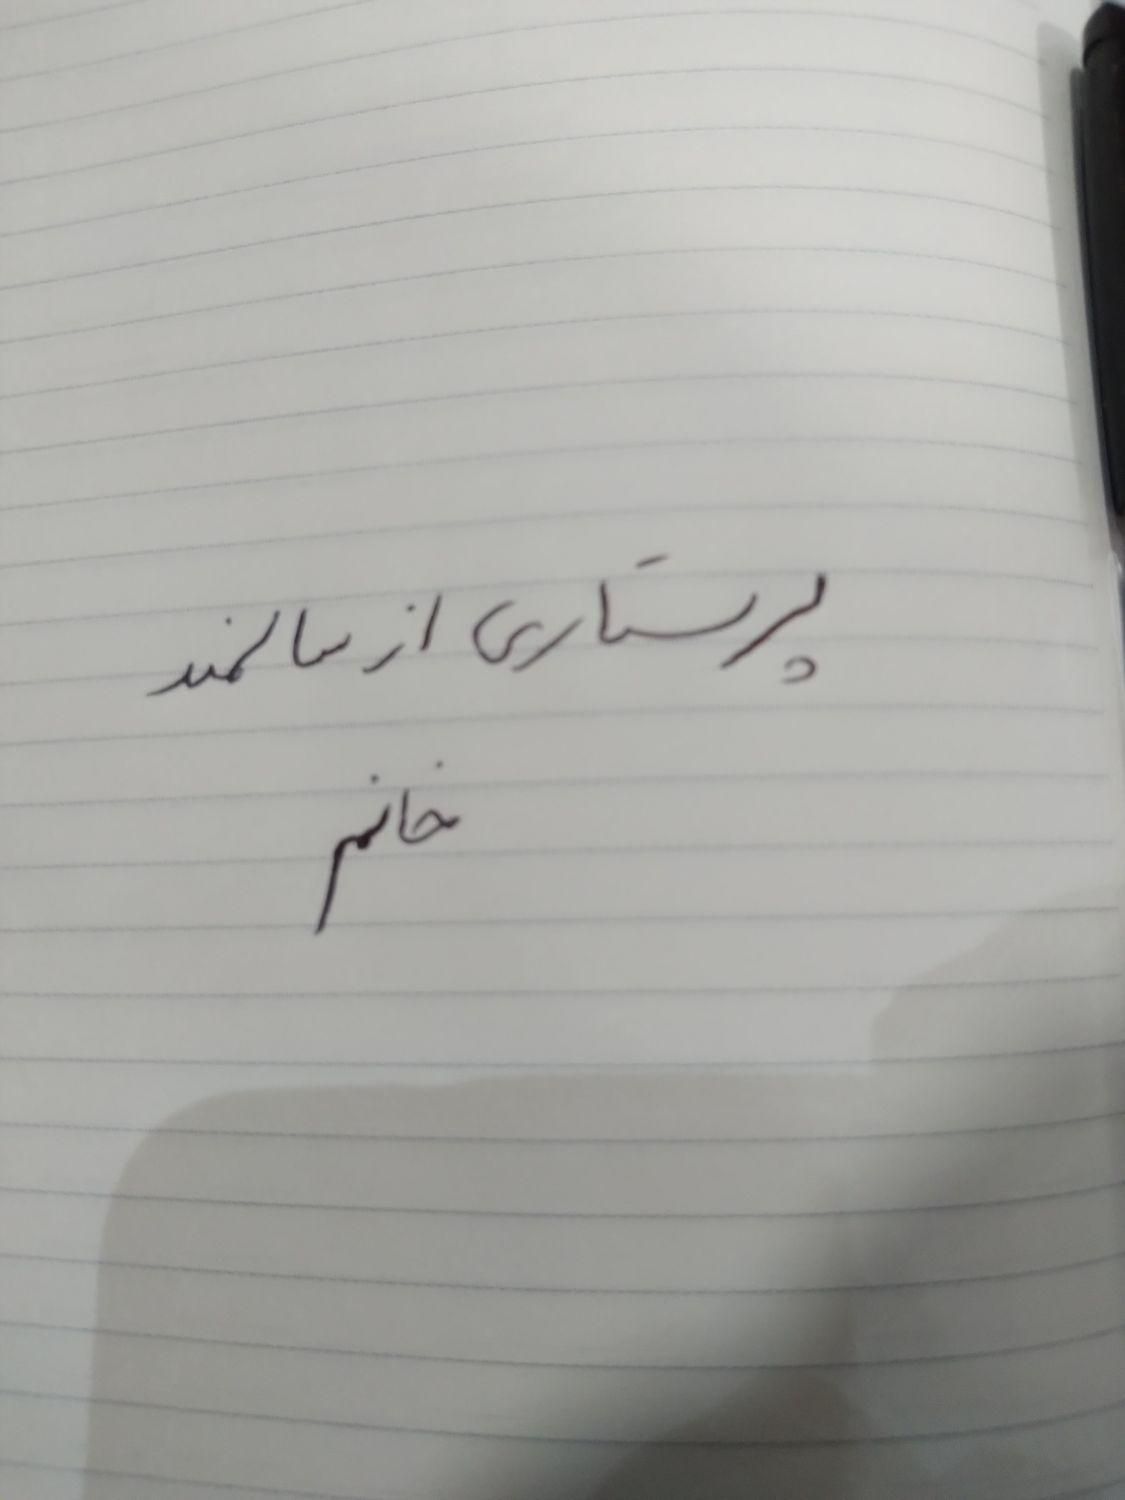 پرستاری از سالمند
خانم